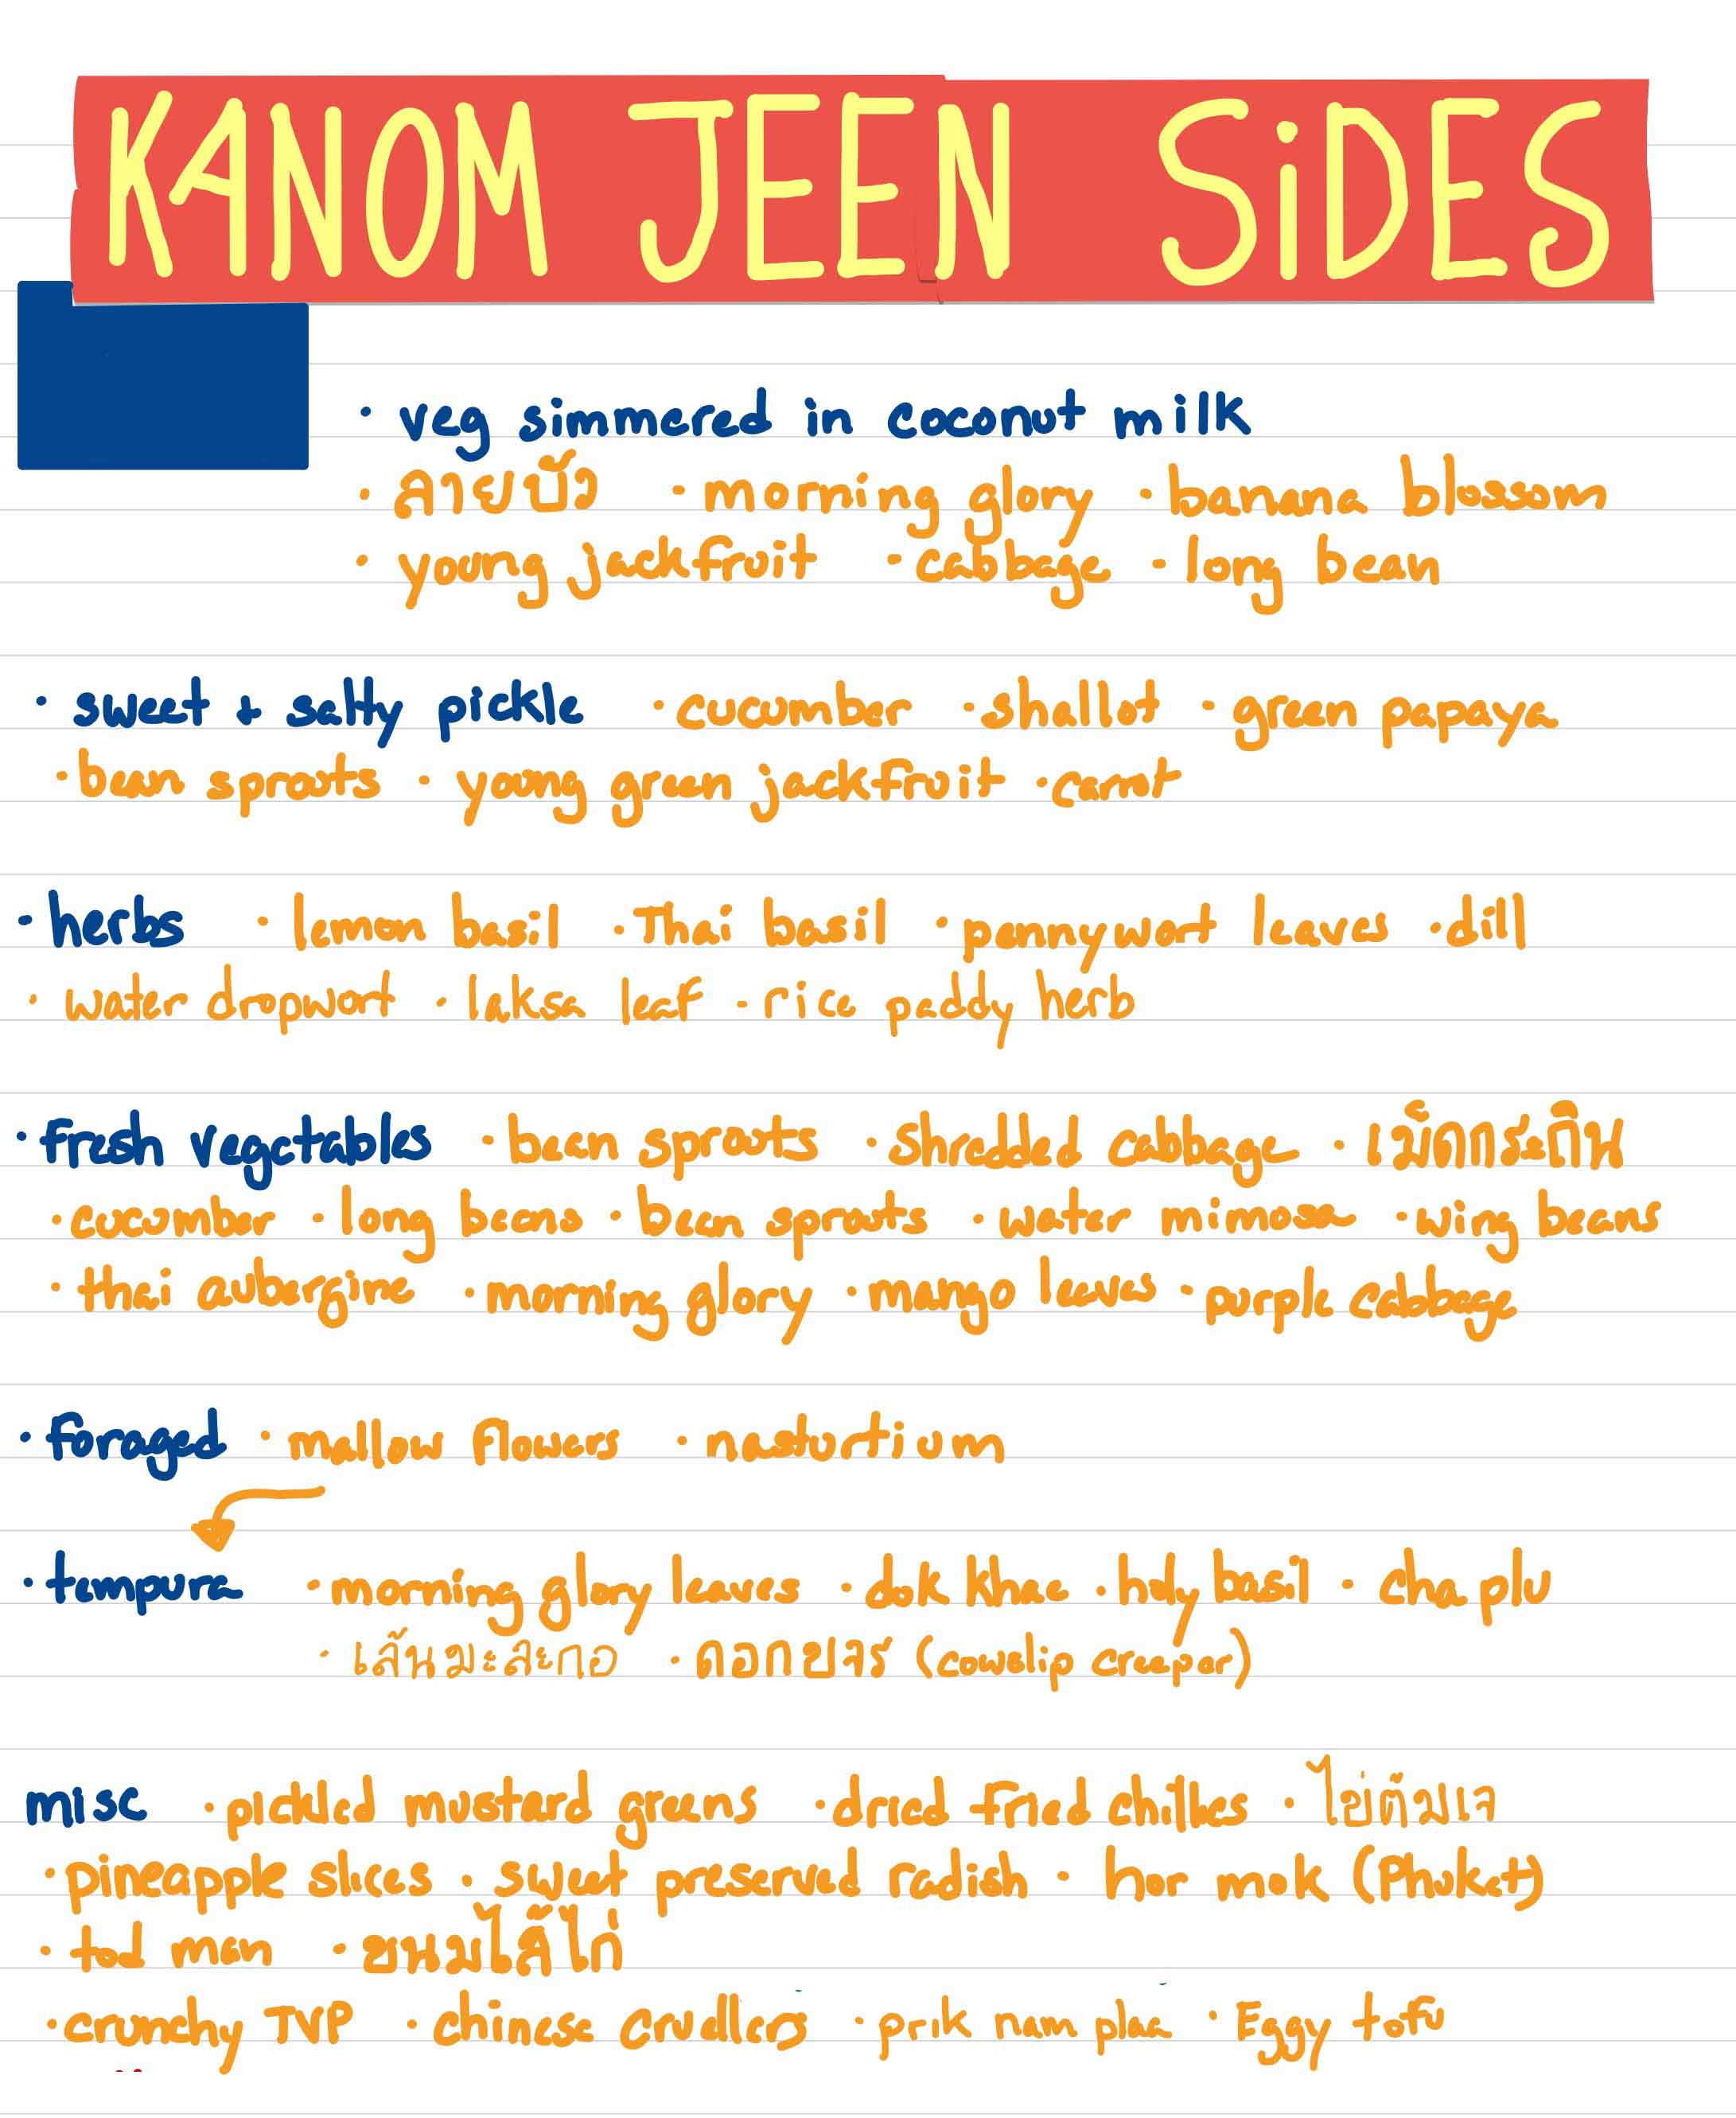 KANOM JEEN SiDES
· veg simmered in coconut milk
· สายบัว · morning glory · banana blossom
· young jackfruit · cabbage · long bean
· sweet + salty pickle · cucumber · shallot · green papaya
· bean sprouts · young green jackfruit · carrot
· herbs · lemon basil · Thai basil · pennywort leaves · dill
· water dropwort · laksa leaf · rice paddy herb
· fresh vegetables · bean sprouts · shredded cabbage · เม็ดกระถิน
· cucumber · long beans · bean sprouts · water mimosa · wing beans
· thai aubergine · morning glory · mango leaves · purple cabbage
· foraged · mallow flowers · nasturtium
· tempura · morning glory leaves · dok khae · holy basil · cha plu
· เส้นมะละกอ · ดอกขจร (cowslip creeper)
misc · pickled mustard greens · dried fried chillies · ไข่ต้มเจ
· pineapple slices · sweet preserved radish · hor mok (Phuket)
· tod man · ขนมไส้ไก่
· crunchy TVP · chinese crullers · prik nam plaa · Eggy tofu